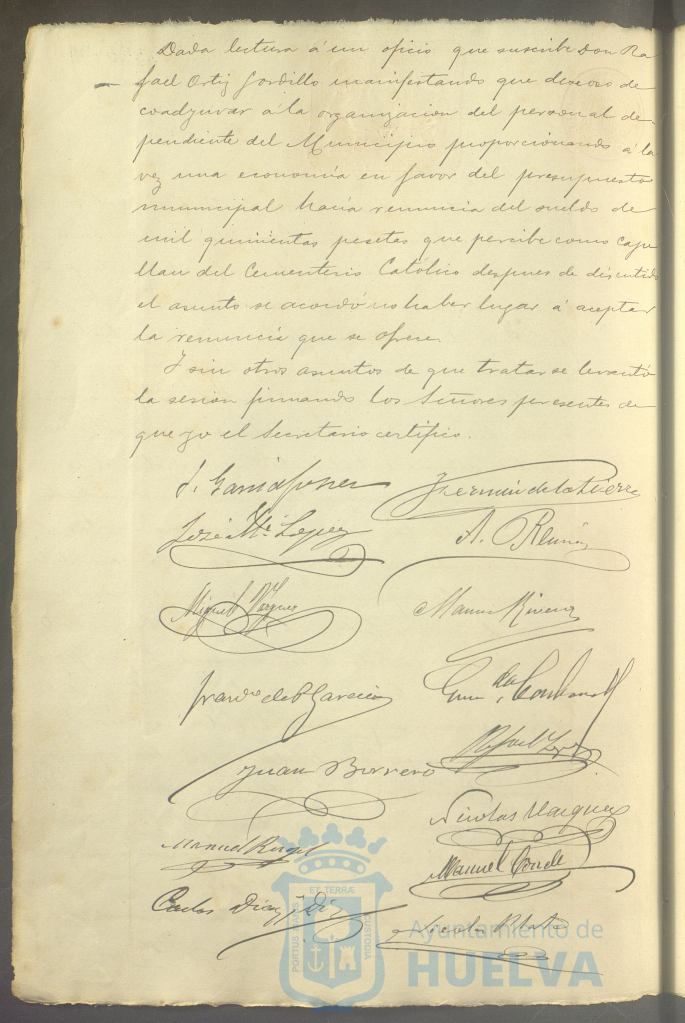 Dada lectura á un oficio que suscribe Don Ra
fael Ortiz Gordillo manifestando que deseoso de
coadyuvar á la organizacion del personal de-
pendiente del Municipio proporcionando á la
vez una economía en favor del presupuesto
municipal hacía renuncia del sueldo de
mil quinientas pesetas que percibe como cape
llan del Cementerio Católico despues de discutido
el asunto se acordó no haber lugar á aceptar
la renuncia que se ofrece.
Y sin otros asuntos de que tratar se levantó
la sesion firmando los Señores presentes de
que yo el Secretario certifico.
J. Garcia
Fermin de la
José Mª Lopez
A.
Miguel Vazquez
Manuel Rivera
Franco de P. Garcia
Rafael Lopez
Juan Borrero
Nicolas Vazquez
Manuel
Manuel Conde
Carlos Diaz
ET TERRÆ
PORTUS MARIS
CUSTODIA
Ayuntamiento de
HUELVA